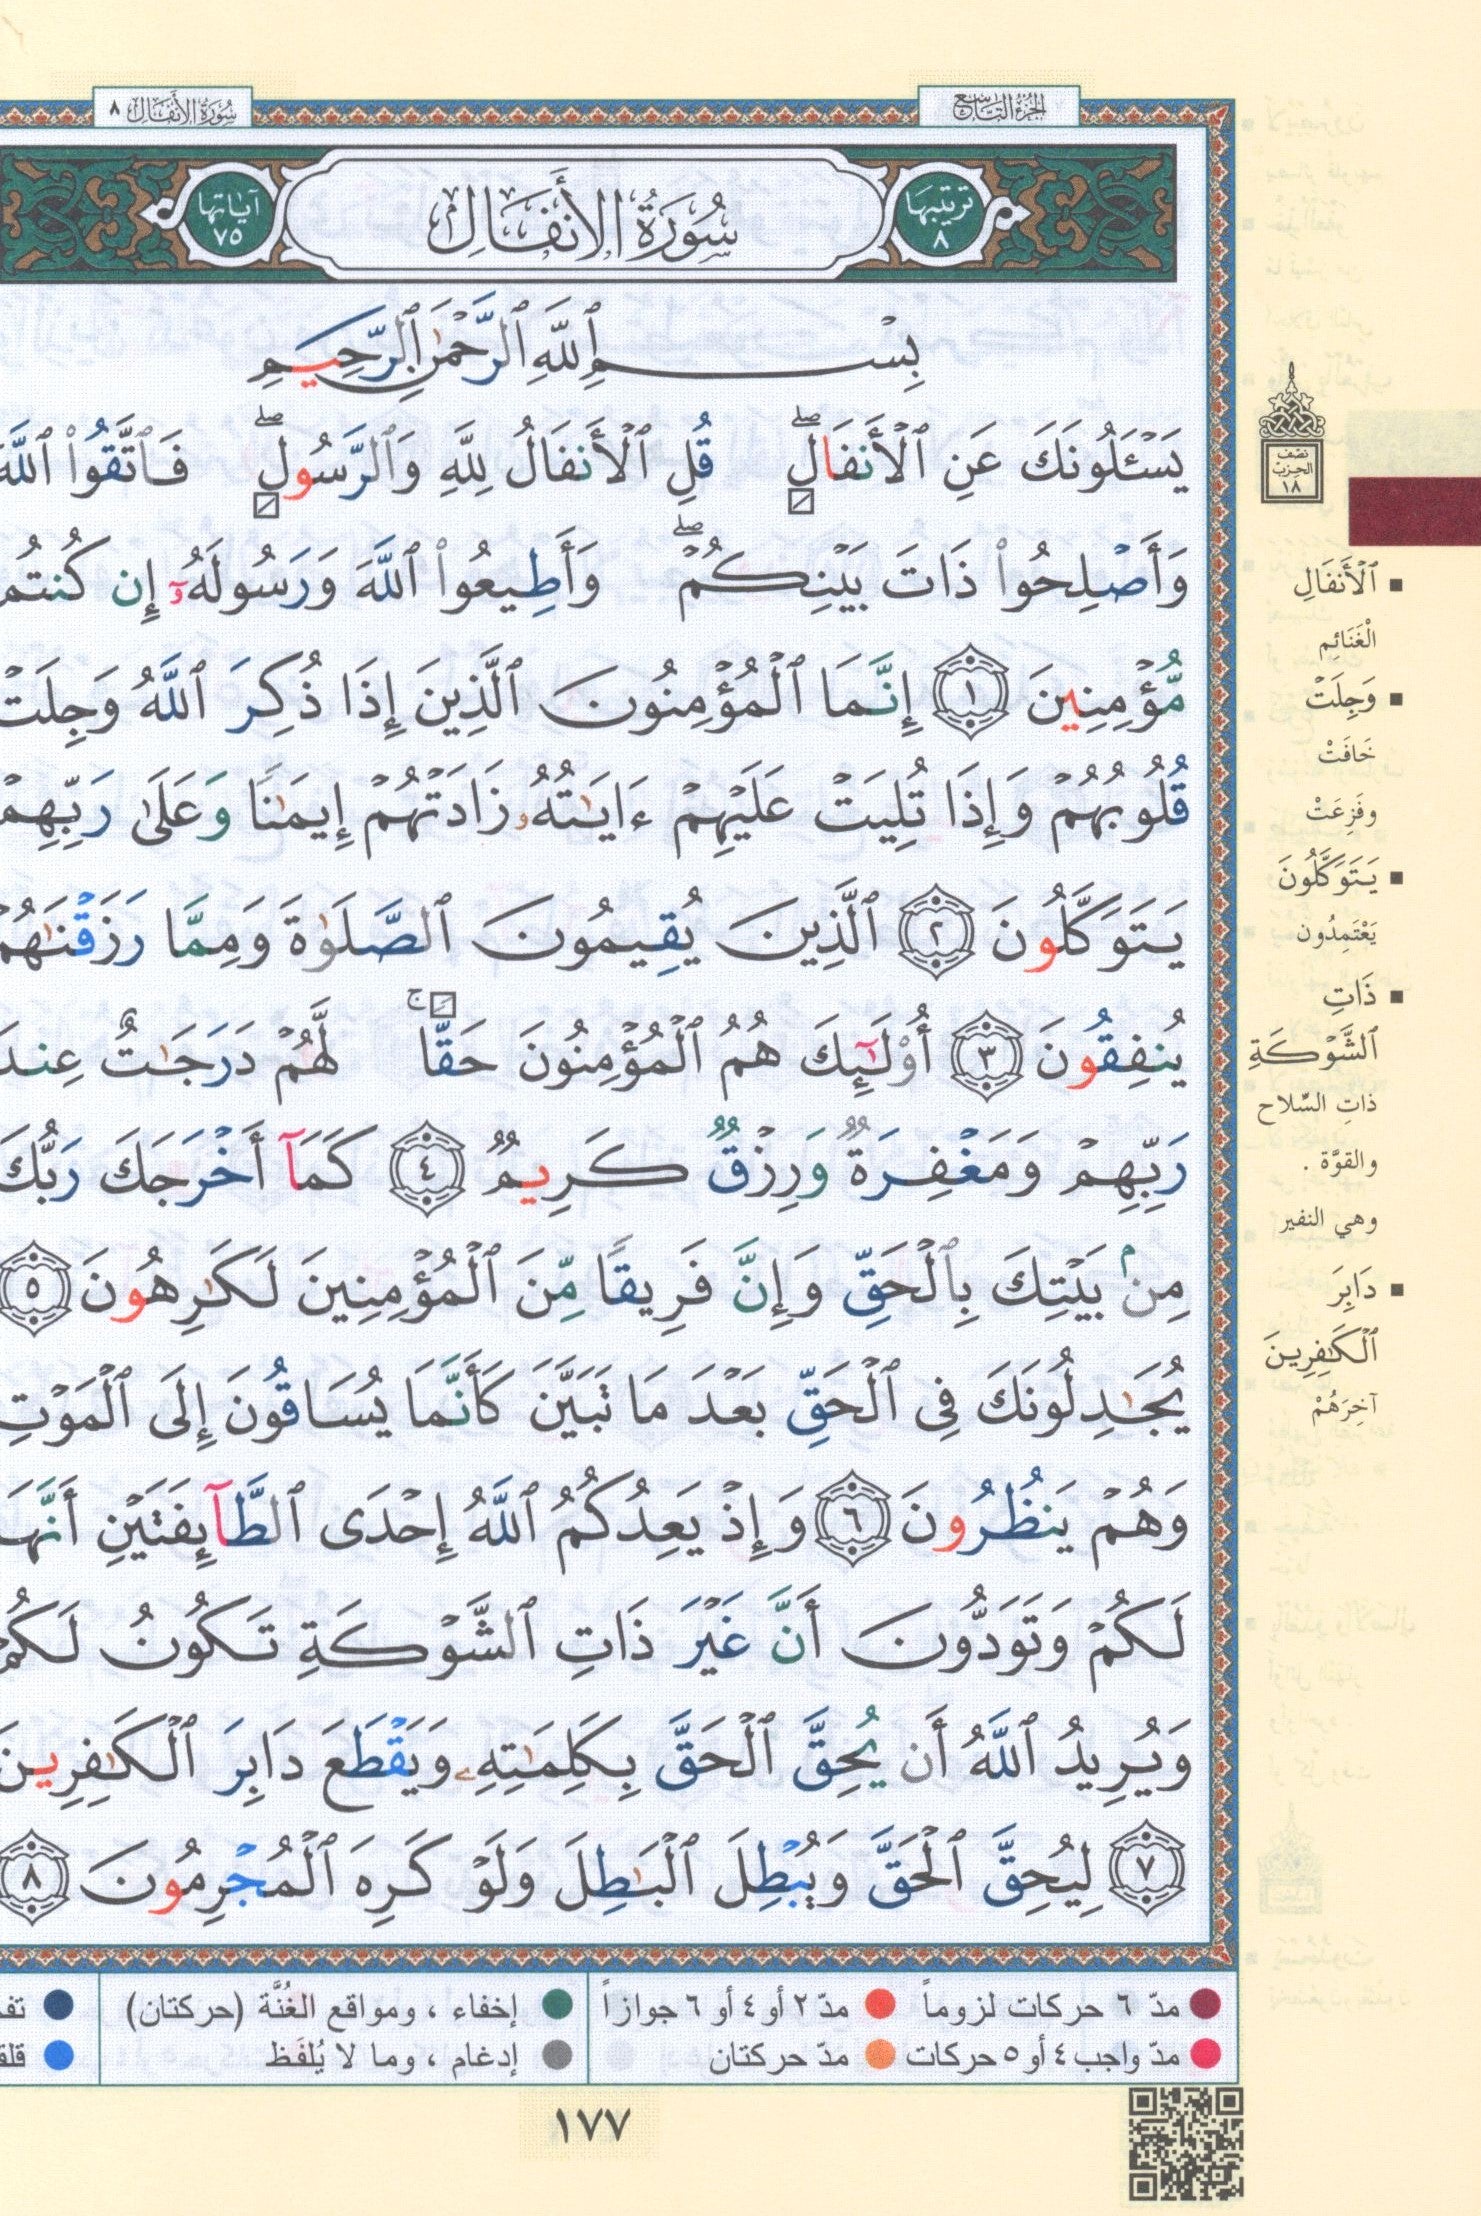 الجزء التاسع
سورة الأنفال ٨
ترتيبها ٨
سُورَةُ الأَنفَالِ
آياتها ٧٥
بِسْمِ ٱللَّهِ ٱلرَّحْمَٰنِ ٱلرَّحِيمِ
يَسْـَٔلُونَكَ عَنِ ٱلْأَنفَالِۖ قُلِ ٱلْأَنفَالُ لِلَّهِ وَٱلرَّسُولِۖ فَٱتَّقُوا۟ ٱللَّهَ
وَأَصْلِحُوا۟ ذَاتَ بَيْنِكُمْۖ وَأَطِيعُوا۟ ٱللَّهَ وَرَسُولَهُۥٓ إِن كُنتُم
مُّؤْمِنِينَ ١ إِنَّمَا ٱلْمُؤْمِنُونَ ٱلَّذِينَ إِذَا ذُكِرَ ٱللَّهُ وَجِلَتْ
قُلُوبُهُمْ وَإِذَا تُلِيَتْ عَلَيْهِمْ ءَايَٰتُهُۥ زَادَتْهُمْ إِيمَٰنًا وَعَلَىٰ رَبِّهِمْ
يَتَوَكَّلُونَ ٢ ٱلَّذِينَ يُقِيمُونَ ٱلصَّلَوٰةَ وَمِمَّا رَزَقْنَٰهُمْ
يُنفِقُونَ ٣ أُو۟لَٰٓئِكَ هُمُ ٱلْمُؤْمِنُونَ حَقًّاۚ لَّهُمْ دَرَجَٰتٌ عِندَ
رَبِّهِمْ وَمَغْفِرَةٌ وَرِزْقٌ كَرِيمٌ ٤ كَمَآ أَخْرَجَكَ رَبُّكَ
مِنۢ بَيْتِكَ بِٱلْحَقِّ وَإِنَّ فَرِيقًا مِّنَ ٱلْمُؤْمِنِينَ لَكَٰرِهُونَ ٥
يُجَٰدِلُونَكَ فِى ٱلْحَقِّ بَعْدَ مَا تَبَيَّنَ كَأَنَّمَا يُسَاقُونَ إِلَى ٱلْمَوْتِ
وَهُمْ يَنظُرُونَ ٦ وَإِذْ يَعِدُكُمُ ٱللَّهُ إِحْدَى ٱلطَّآئِفَتَيْنِ أَنَّهَا
لَكُمْ وَتَوَدُّونَ أَنَّ غَيْرَ ذَاتِ ٱلشَّوْكَةِ تَكُونُ لَكُمْ
وَيُرِيدُ ٱللَّهُ أَن يُحِقَّ ٱلْحَقَّ بِكَلِمَٰتِهِۦ وَيَقْطَعَ دَابِرَ ٱلْكَٰفِرِينَ
٧ لِيُحِقَّ ٱلْحَقَّ وَيُبْطِلَ ٱلْبَٰطِلَ وَلَوْ كَرِهَ ٱلْمُجْرِمُونَ ٨
نصف
الحزب
١٨
▪ ٱلْأَنفَالِ
الْغَنَائِمِ
▪ وَجِلَتْ
خَافَتْ
وفَزِعَتْ
▪ يَتَوَكَّلُونَ
يَعْتَمِدُون
▪ ذَاتِ
ٱلشَّوْكَةِ
ذاتِ السِّلاح
والقوَّة .
وهي النفير
▪ دَابِرَ
ٱلْكَٰفِرِينَ
آخِرَهُمْ
مدّ ٦ حركات لزوماً
مدّ ٢ أو ٤ أو ٦ جوازاً
إخفاء ، ومواقع الغُنَّة (حركتان)
مدّ واجب ٤ أو ٥ حركات
مدّ حركتان
إدغام ، وما لا يُلفَظ
١٧٧